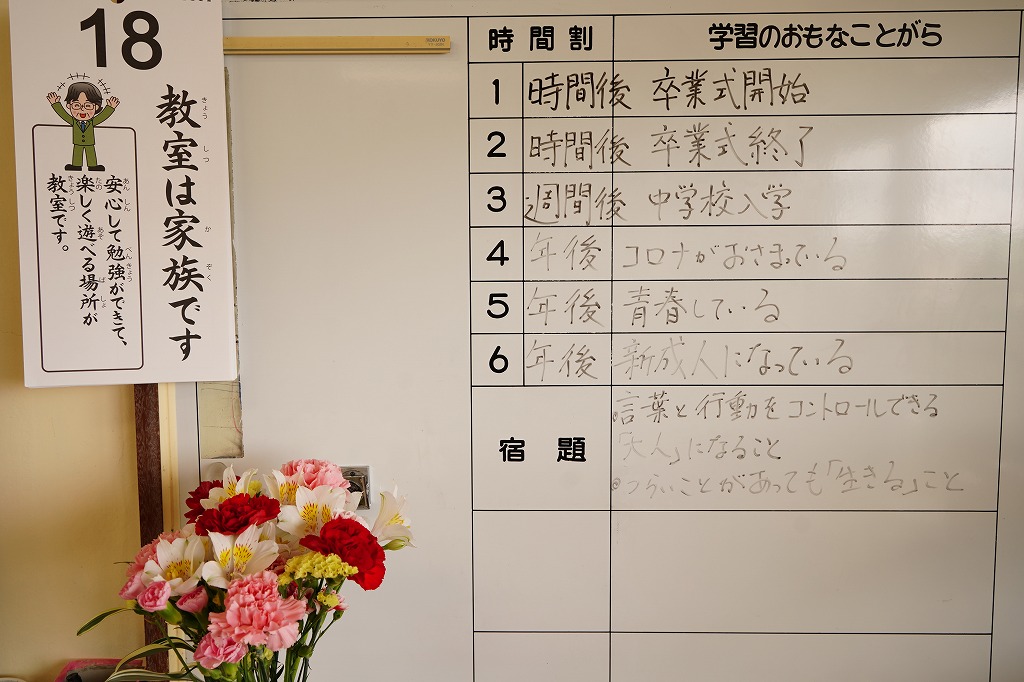 18
教室は家族です
安心して勉強ができて、
楽しく遊べる場所が
教室です。
時間割 学習のおもなことがら
1 時間後 卒業式開始
2 時間後 卒業式終了
3 週間後 中学校入学
4 年後 コロナがおさまっている
5 年後 青春している
6 年後 新成人になっている
宿題 ◎言葉と行動をコントロールできる
「大人」になること
◎つらいことがあっても「生きる」こと